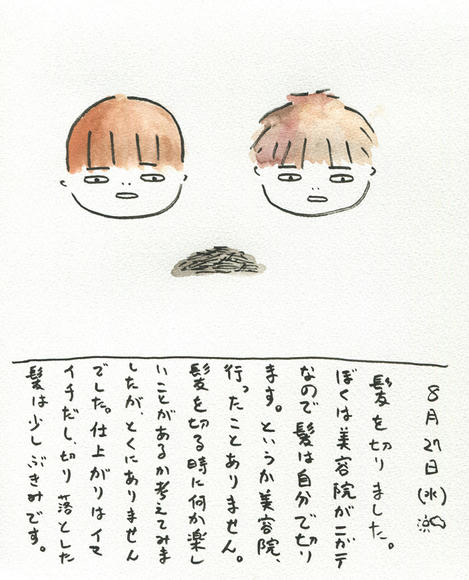 8月27日(水)
髪を切りました。
ぼくは美容院がニガテ
なので髪は自分で切り
ます。というか美容院、
行ったことありません。
髪を切る時に何か楽し
いことがあるか考えてみま
したが、とくにありません
でした。仕上がりはイマ
イチだし、切り落とした
髪は少しぶきみです。